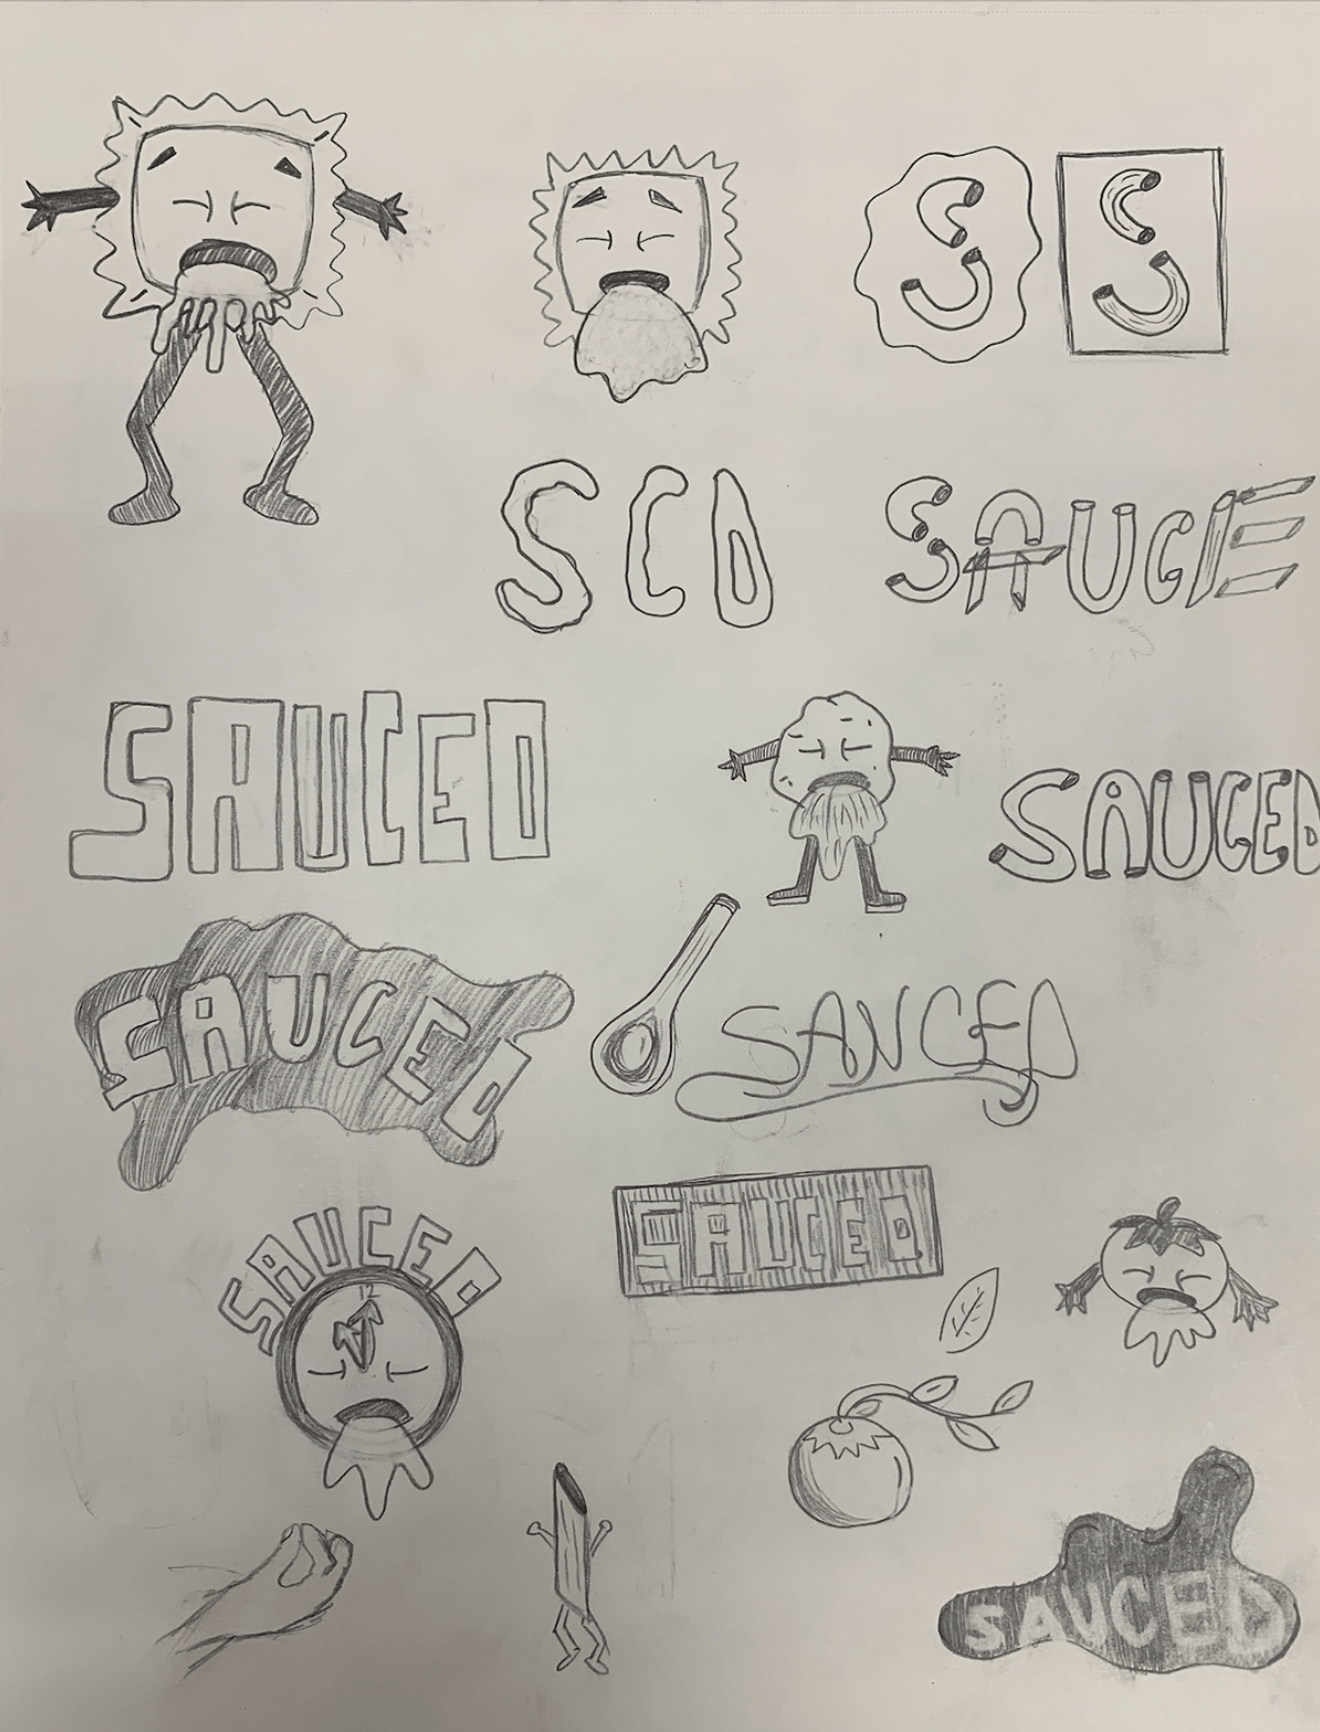 S S
SCD
SAUCE
SAUCED
SAUCED
SAUCED
SAUCED
SAUCED
SAUCED
SAUCED